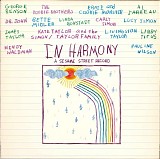 GEORGE BENSON
THE DOOBIE BROTHERS
ERNIE AND COOKIE MONSTER
AL JARREAU
DR. JOHN
BETTE MIDLER
LINDA RONSTADT
CARLY SIMON
LUCY SIMON
JAMES TAYLOR
KATE TAYLOR AND THE SIMON/TAYLOR FAMILY
LIVINGSTON TAYLOR
LIBBY TITUS
WENDY WALDMAN
IN HARMONY
PAULINE WILSON
A SESAME STREET RECORD